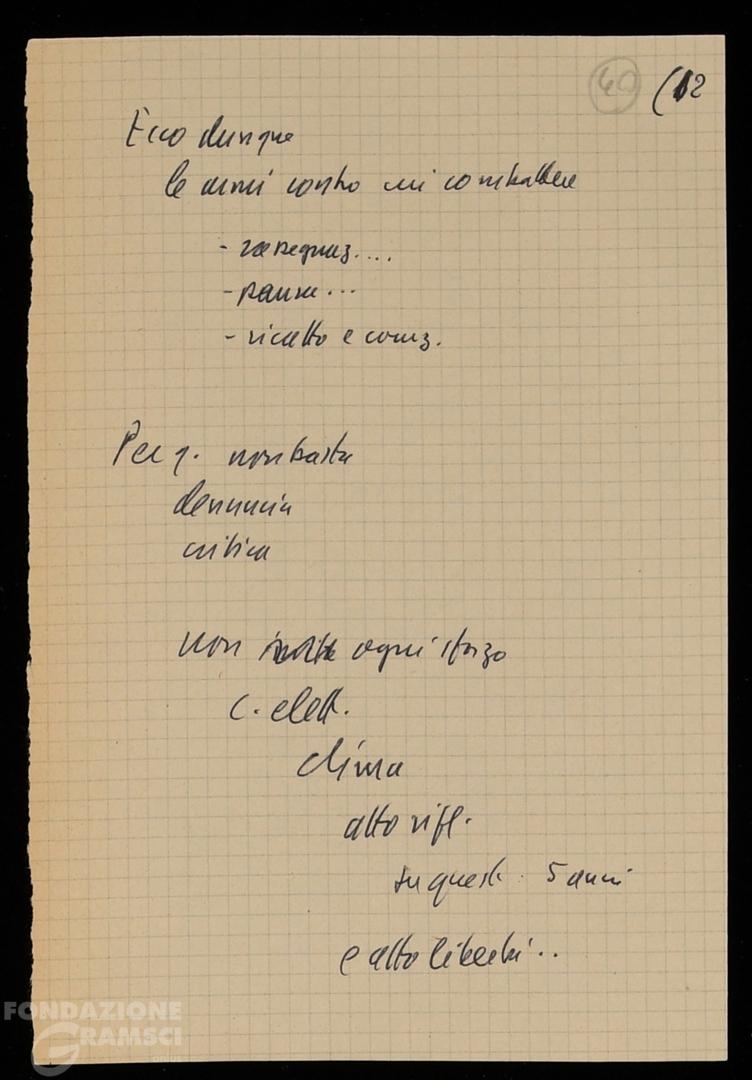 40 (12
Ecco dunque
le armi contro cui combattere
- rassegnaz....
- paura...
- ricatto e corruz.
Per q. non basta
denuncia
critica
non ogni sforzo
C. elett.
clima
atto rifl.
su questi 5 anni
e atto libertà..
FONDAZIONE
GRAMSCI